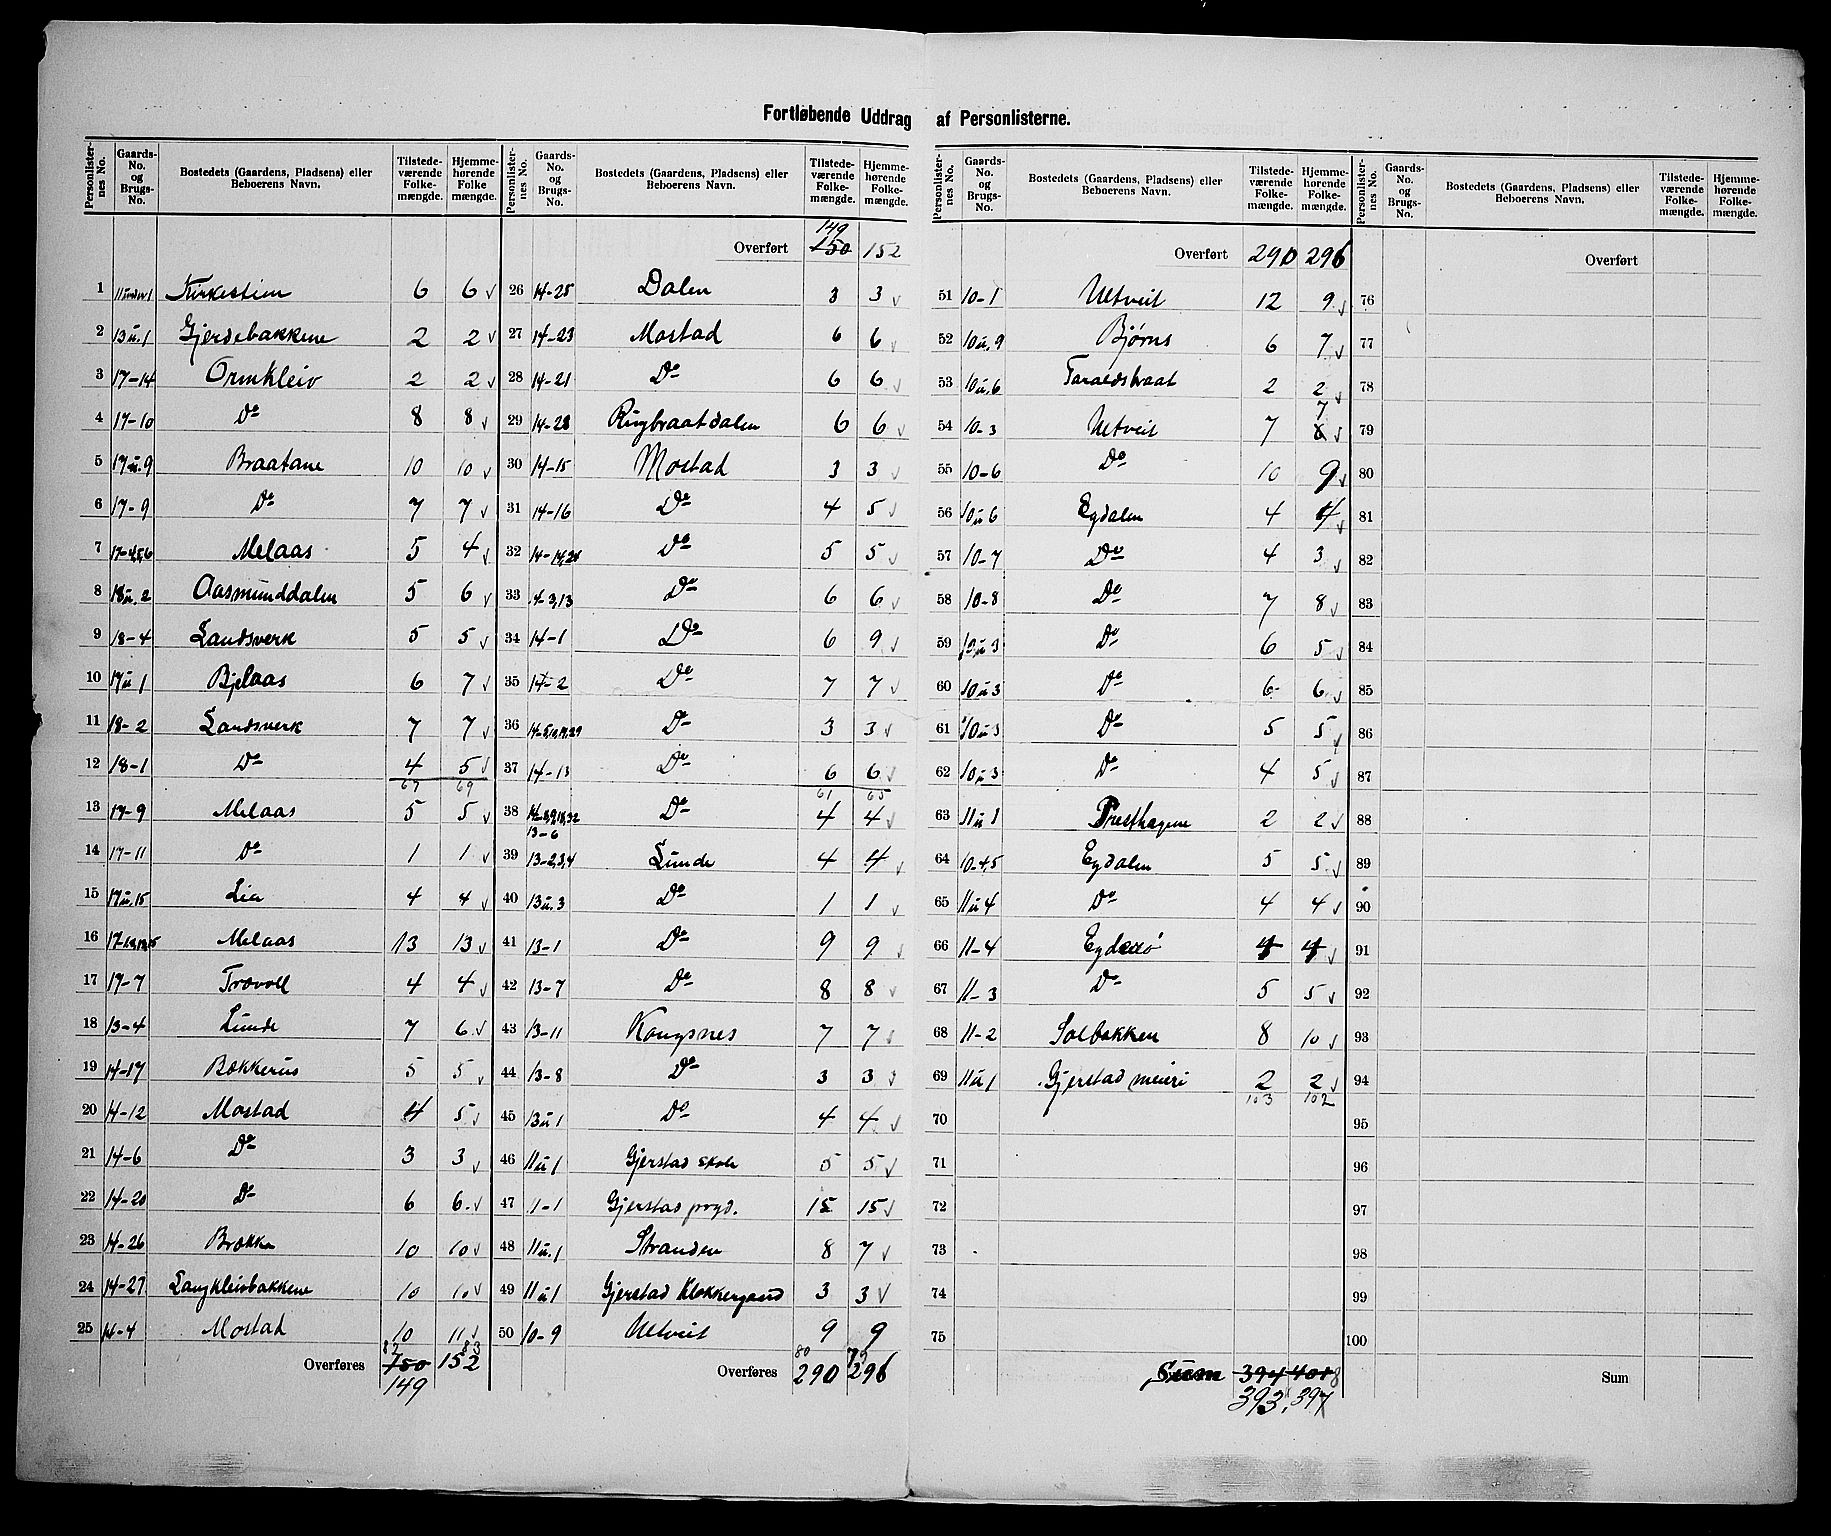 Fortløbende Uddrag af Personlisterne.
Personlisternes No. | Gaards-No. og Brugs-No. | Bostedets (Gaardens, Pladsens) eller Beboerens Navn. | Tilstedeværende Folkemængde. | Hjemmehørende Folkemængde.
1 11 under 1 Kirkestien 6 6 v
2 13 u. 1 Gjerdebakkene 2 2 v
3 17-14 Ormkleiv 2 2 v
4 17-10 Do 8 8 v
5 17 u. 9 Braatane 10 10 v
6 17-9 Do 7 7 v
7 17-4,5,6 Melaas 5 4 v
8 18 u. 2 Aasmunddalen 5 6 v
9 18-4 Landsverk 5 5 v
10 17 u 1 Bjelaas 6 7 v
11 18-2 Landsverk 7 7 v
12 18-1 Do 4 5 v
67 69
13 17-9 Melaas 5 5 v
14 17-11 Do 1 1 v
15 17 u. 15 Lia 4 4 v
16 Melaas 13 13 v
17 17-7 Trovoll 4 4 v
18 13-4 Lunde 7 6 v
19 14-17 Bækkerus 5 5 v
20 14-12 Mostad 4 5 v
21 14-6 Do 3 3 v
22 14-20 Do 6 6 v
23 14-26 Brokka 10 10 v
24 14-27 Langkleivbakkene 10 10 v
25 14-4 Mostad 10 11 v
82 83
Overføres 150 152
149
Personlisternes No. | Gaards-No. og Brugs-No. | Bostedets (Gaardens, Pladsens) eller Beboerens Navn. | Tilstedeværende Folkemængde. | Hjemmehørende Folkemængde.
149
Overført 150 152
26 14-25 Dalen 3 3 v
27 14-23 Mostad 6 6 v
28 14-21 Do 6 6 v
29 14-28 Rugbraatdalen 6 6 v
30 14-15 Mostad 3 3 v
31 14-16 Do 4 5 v
32 14-14,24 Do 5 5 v
33 14-3,13 Do 6 6 v
34 14-1 Do 6 9 v
35 14-2 Do 7 7 v
36 Do 3 3 v
37 14-13 Do 6 6 v
61 65
38 13-6 Do 4 4 v
39 13-2,3,4 Lunde 4 4 v
40 13 u. 3 Do 1 1 v
41 13-1 Do 9 9 v
42 13-7 Do 8 8 v
43 13-11 Kongsnes 7 7 v
44 13-8 Do 3 3 v
45 13 u 1 Do 4 4 v
46 11 u 1 Gjerstad skole 5 5 v
47 1-1 Gjerstad prgd. 15 15 v
48 11 u. 1 Stranden 8 7 v
49 11 u 1 Gjerstad Klokkergaard 3 3 v
50 10-9 Ultveit 9 9
80 79
Overføres 290 296
Personlisternes No. | Gaards-No. og Brugs-No. | Bostedets (Gaardens, Pladsens) eller Beboerens Navn. | Tilstedeværende Folkemængde. | Hjemmehørende Folkemængde.
Overført 290 296
51 10-1 Ultveit 12 9 v
52 10 u. 9 Bjørns 6 7 v
53 10 u. 6 Taraldsbraat 2 2 v
54 10-3 Ultveit 7 7 8 v
55 10-6 Do 10 9 v
56 10 u 6 Egdalen 4 4 v
57 10-7 Do 4 3 v
58 10-8 Do 7 8 v
59 10 u 3 Do 6 5 v
60 10 u 3 Do 6 6 v
61 10 u 3 Do 5 5 v
62 10 u 3 Do 4 5 v
63 11 u 1 Presthagene 2 2 v
64 10-4,5 Egdalen 5 5 v
65 11 u 4 Do 4 4 v
66 11-4 4 4 v
67 11-3 Do 5 5 v
68 11-2 Solbakken 8 10 v
69 11 u 1 Gjerstad meieri 2 2 v
103 102
70
71
72
73
74
75
Sum 394 401 8
393. 397
Personlisternes No. | Gaards-No. og Brugs-No. | Bostedets (Gaardens, Pladsens) eller Beboerens Navn. | Tilstedeværende Folkemængde. | Hjemmehørende Folkemængde.
Overført
76
77
78
79
80
81
82
83
84
85
86
87
88
89
90
91
92
93
94
95
96
97
98
99
100
Sum